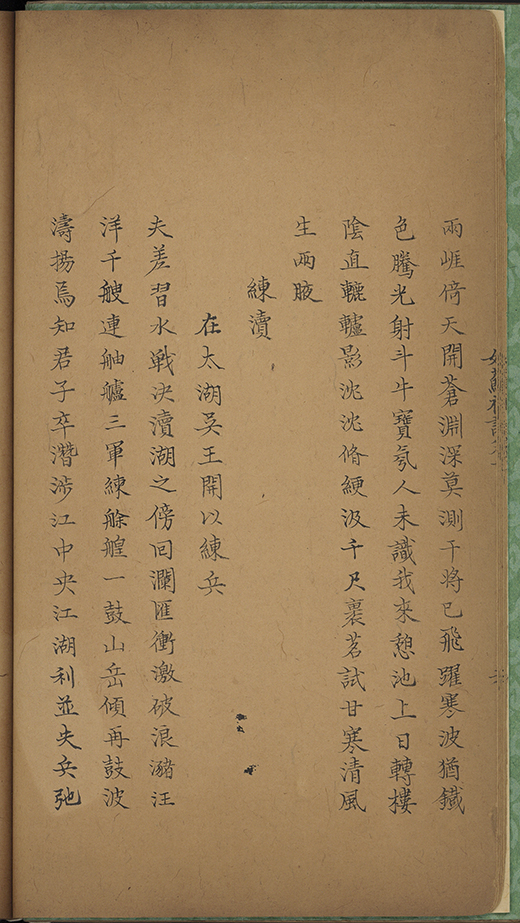 兩崕倚天開蒼淵深莫測干將已飛躍寒波猶鐵
色騰光射斗牛寶氛人未識我來憩池上日轉樓
陰直轆轤影沈沈脩綆汲千尺裹茗試甘寒清風
生兩腋
練瀆
在太湖吳王開以練兵
夫差習水戰決瀆湖之傍回瀾匯衝激破浪瀦汪
洋千艘連舳艫三軍練艅艎一鼓山岳傾再鼓波
濤揚焉知君子卒潛涉江中央江湖利並失兵弛